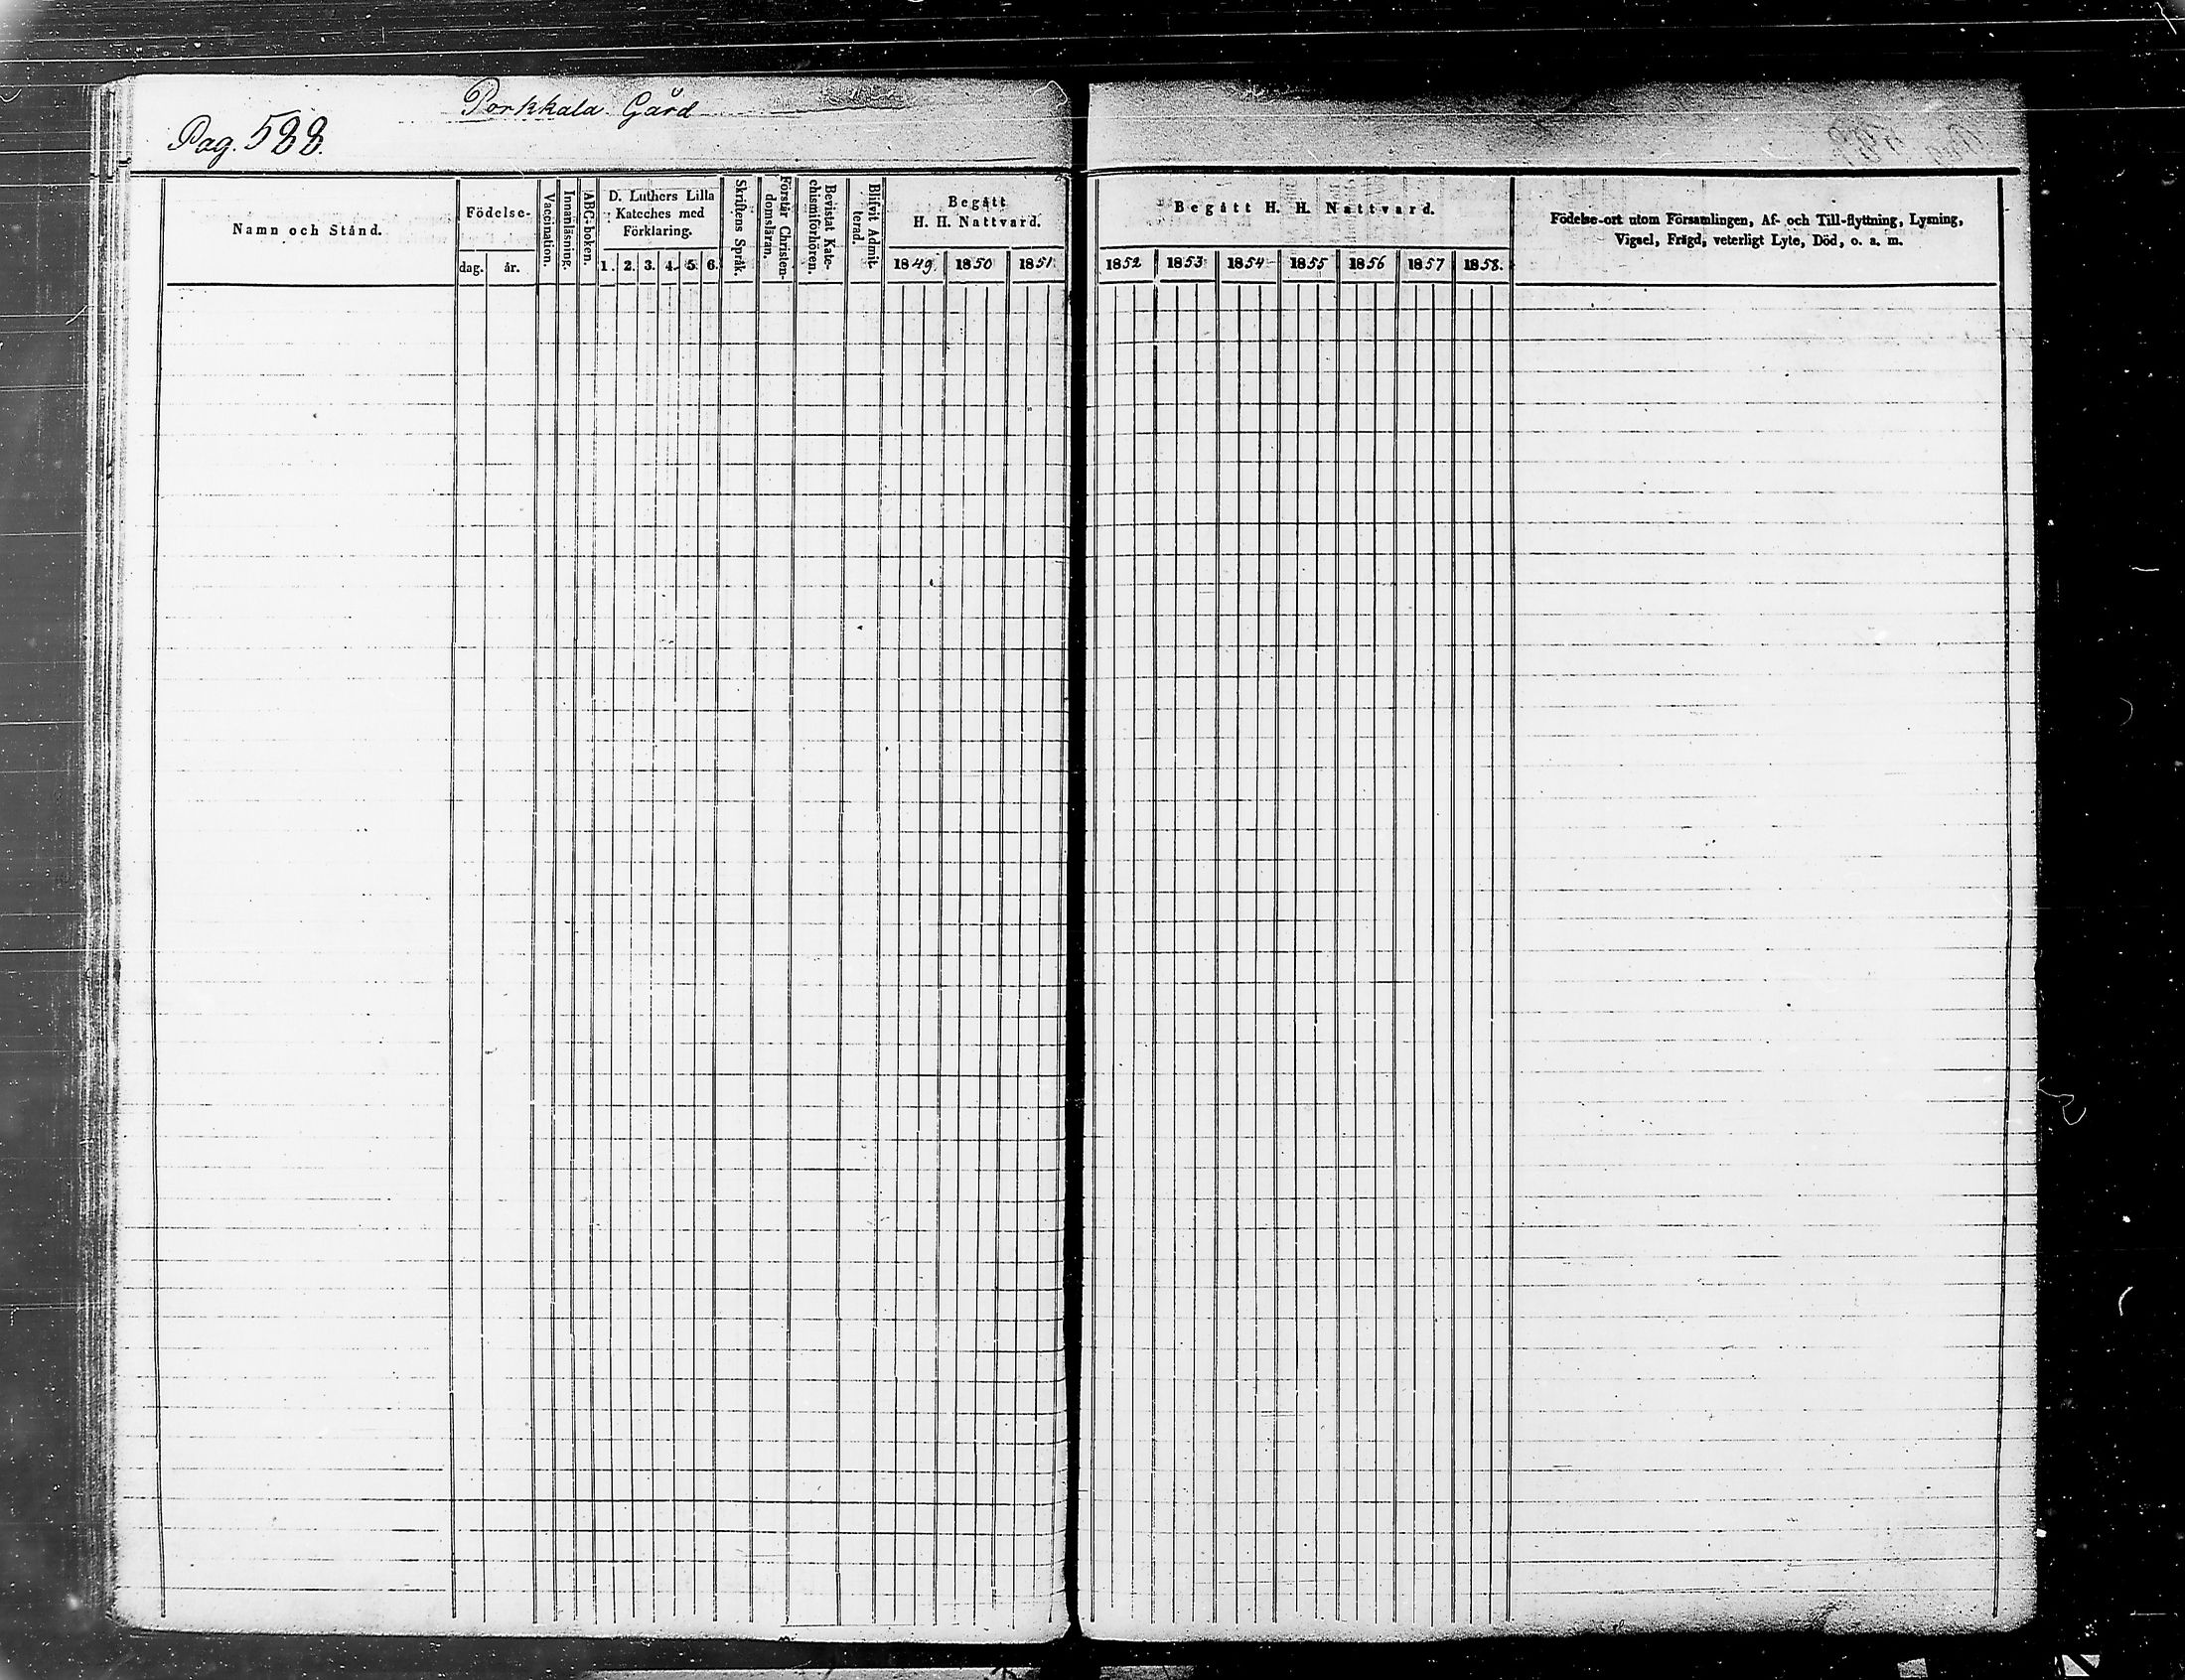 Porkkala Gård
Pag. 588.
Namn och Stånd.
Födelse-
dag. år.
Vaccination.
Innanläsning.
ABC-boken.
D. Luthers Lilla
Kateches med
Förklaring.
1. 2. 3. 4. 5. 6.
Skriftens Språk.
Förstår Christen-
domsläran.
Bevistat Kate-
chismiförhören.
Blifvit Admit-
terad.
Begått
H. H. Nattvard.
1849. 1850 1851.
Begått H. H. Nattvard.
1852 1853 1854 1855 1856 1857 1858.
Födelse-ort utom Församlingen, Af- och Till-flyttning, Lysning,
Vigsel, Frägd, veterligt Lyte, Död, o. s. m.